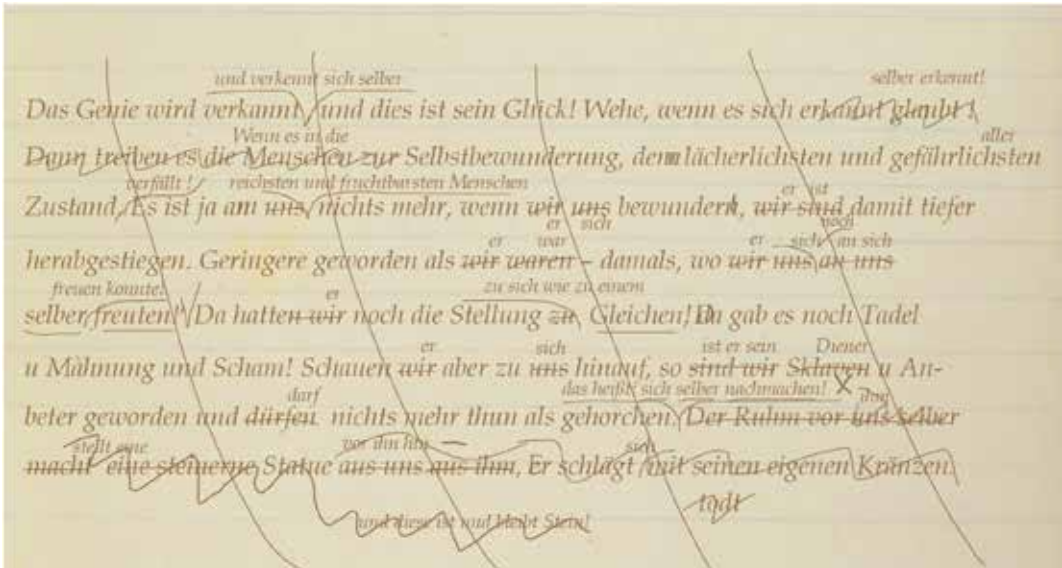 und verkennt sich selber selber erkennt!
Das Genie wird verkannt, und dies ist sein Glück! Wehe, wenn es sich erkannt glaubt!
Wenn es in die aller
Denn treiben es die Menschen zur Selbstbewunderung, dem lächerlichsten und gefährlichsten
verfällt! reichsten und fruchtbarsten Menschen er ist
Zustand, Es ist ja am uns, nichts mehr, wenn wir uns bewundern, wir sind damit tiefer
er sich noch
er war er sich an sich
herabgestiegen. Geringere geworden als wir waren – damals, wo wir uns, an uns
freuen konnte! er zu sich wie zu einem
selber freuten! Da hatten wir noch die Stellung zu Gleichen! Da gab es noch Tadel
er sich ist er sein Diener
u Mahnung und Scham! Schauen wir aber zu uns hinauf, so sind wir Sklaven u An-
darf das heißt: sich selber nachmachen! ihm
beter geworden und dürfen nichts mehr thun als gehorchen. Der Ruhm vor uns selber
stellt eine vor ihn hin – sich
macht eine steinerne Statue aus uns aus ihm, Er schlägt mit seinen eigenen Kränzen.
todt
und diese ist und bleibt Stein!